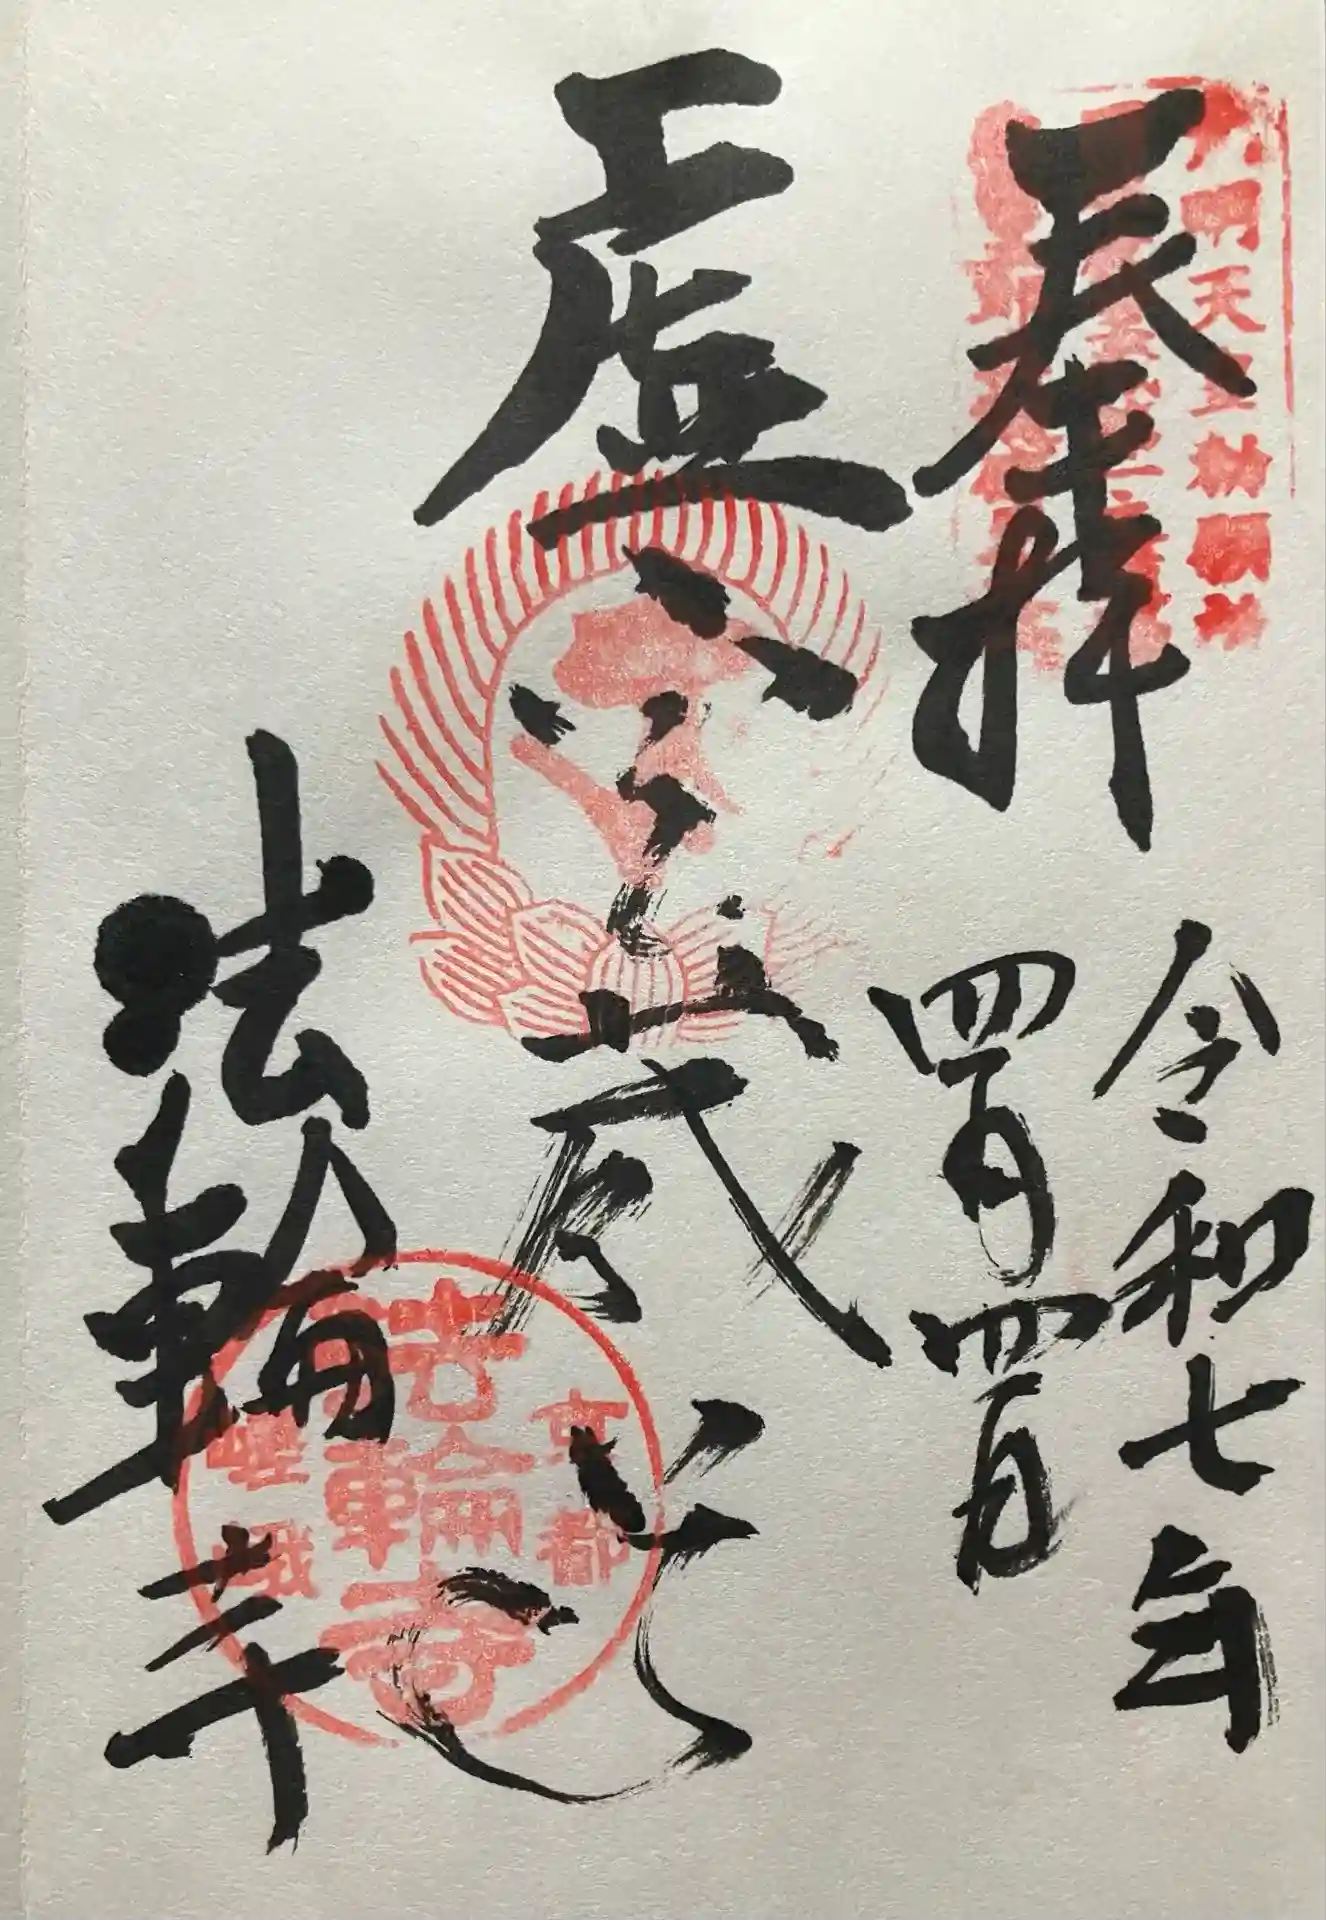 奉拝
令和七年
四月四日
虚空蔵尊
法輪寺
京都
法輪寺
嵯峨